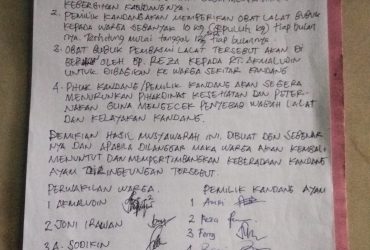 KEBERSIHAN KANDANGNYA.
2. PEMILIK KANDANG AKAN MEMBERIKAN OBAT LALAT BUBUK
KEPADA WARGA SEBANYAK 10 KG (SEPULUH KG) TIAP BULAN
NYA. TERHITUNG MULAI TANGGAL TIAP BULANNYA.
3. OBAT BUBUK PEMBASMI LALAT TERSEBUT AKAN DI
BERIKAN OLEH BP. REZA KEPADA RT. AKMALUDIN
UNTUK DIBAGIKAN KE WARGA SEKITAR KANDANG
4. PIHAK KANDANG/PEMILIK KANDANG AKAN SEGERA
MENURUNKAN PIHAK DINAS KESEHATAN DAN PETER-
NAKAN GUNA MENGECEK PENYEBAB WABAH LALAT
DAN KELAYAKAN KANDANG.
DEMIKIAN HASIL MUSYAWARAH INI. DIBUAT DEN SEBENAR
NYA DAN APABILA DILANGGAR MAKA WARGA AKAN KEMBALI
MENUNTUT DAN MEMPERTIMBANGKAN KEBERADAAN KANDANG
AYAM LINGKUNGAN TERSEBUT.
PERWAKILAN WARGA. PEMILIK KANDANG AYAM
1 AKMALUDIN 1
2. JONI IRAWAN 2 Reza
3. A. SODIKIN 3
4